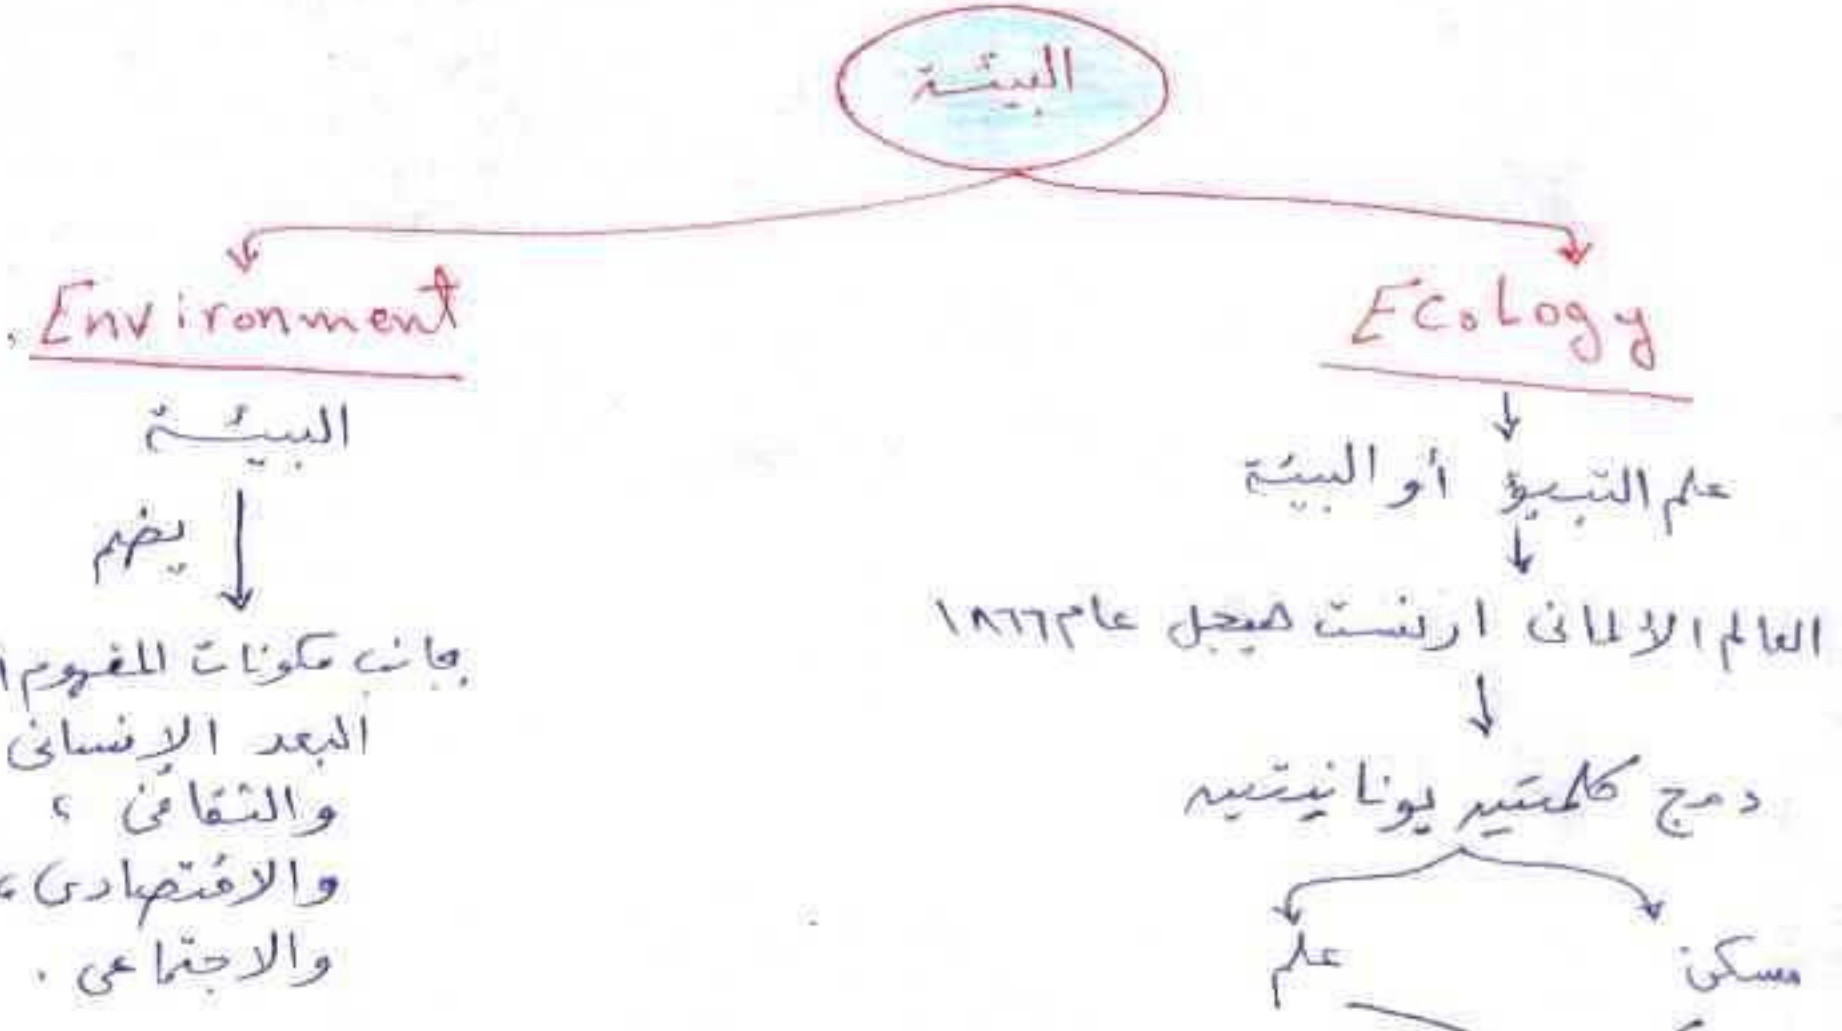 البيئة
Ecology
علم التبيؤ أو البيئة
العالم الالمانى ارنست هيجل عام ١٨٦٦
دمج كلمتين يونانيتين
مسكن
علم
Environment
البيئة
يضم
جانب مكونات المفهوم
البعد الإنسانى
والثقافى ،
والاقتصادى ،
والاجتماعى .